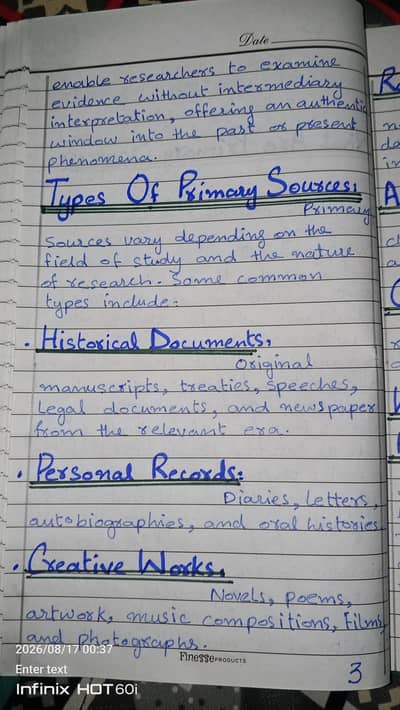 Date
enable researchers to examine
evidence without intermediary
interpretation, offering an authentic
window into the past or present
phenomena.
Types Of Primary Sources:
Primary
Sources vary depending on the
field of study and the nature
of research. Some common
types include:
• Historical Documents:
Original
manuscripts, treaties, speeches,
legal documents, and newspaper
from the relevant era.
• Personal Records:
Diaries, letters,
autobiographies, and oral histories.
• Creative Works:
Novels, poems,
artwork, music compositions, films,
and photographs.
Finesse PRODUCTS
3
2026/08/17 00:37
Enter text
Infinix HOT 60i